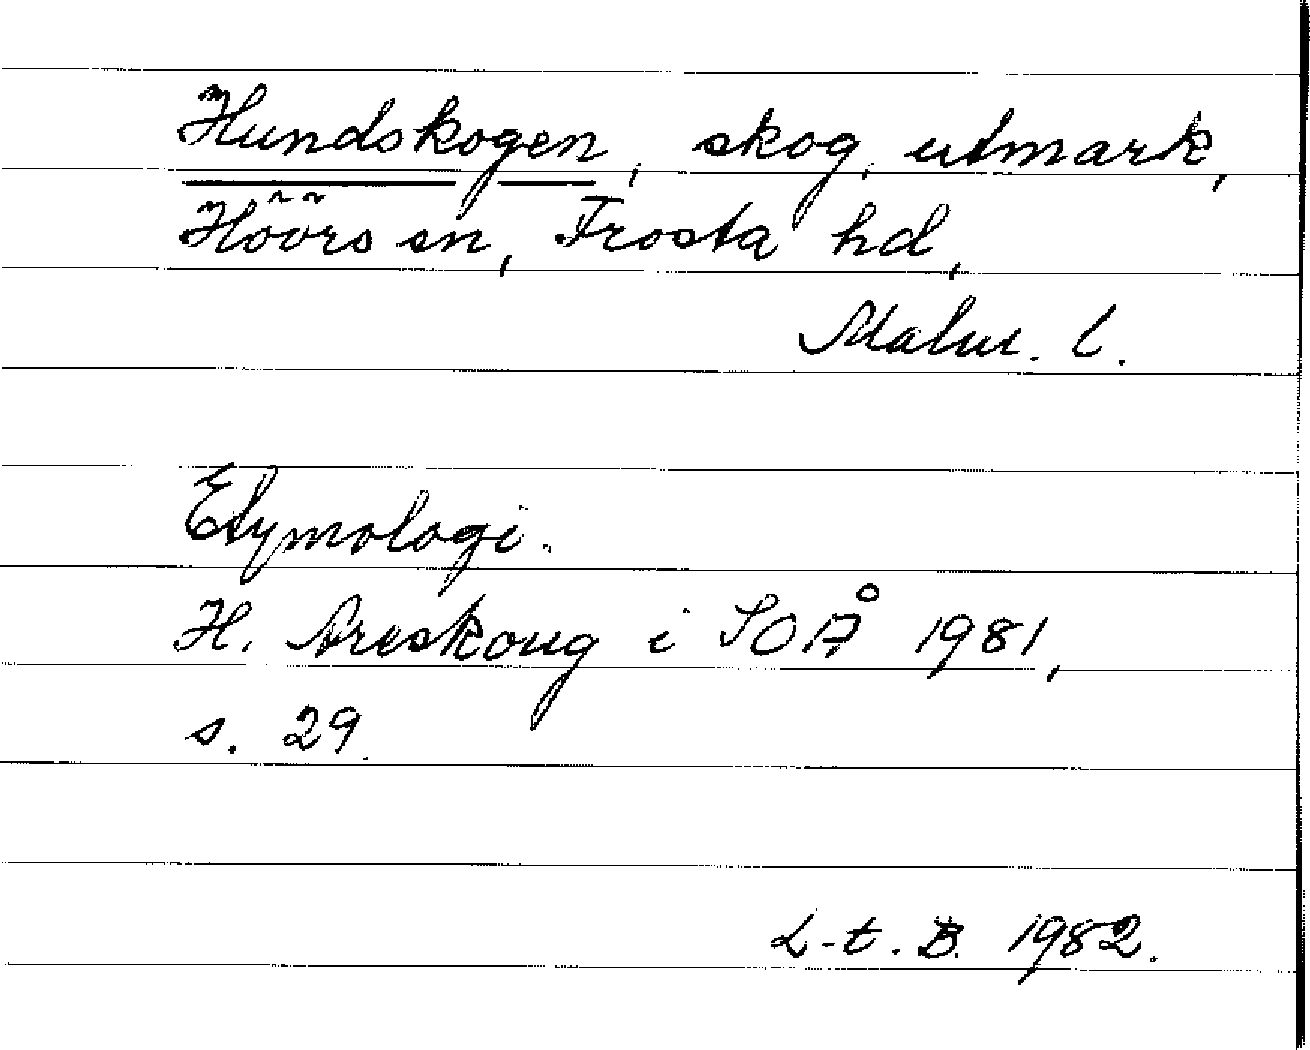 Hundskogen, skog, utmark,
Höörs sn, Frosta hd,
Malm. l.
Etymologi.
H. Areskoug i SOÅ 1981,
s. 29.
L-t. B. 1982.